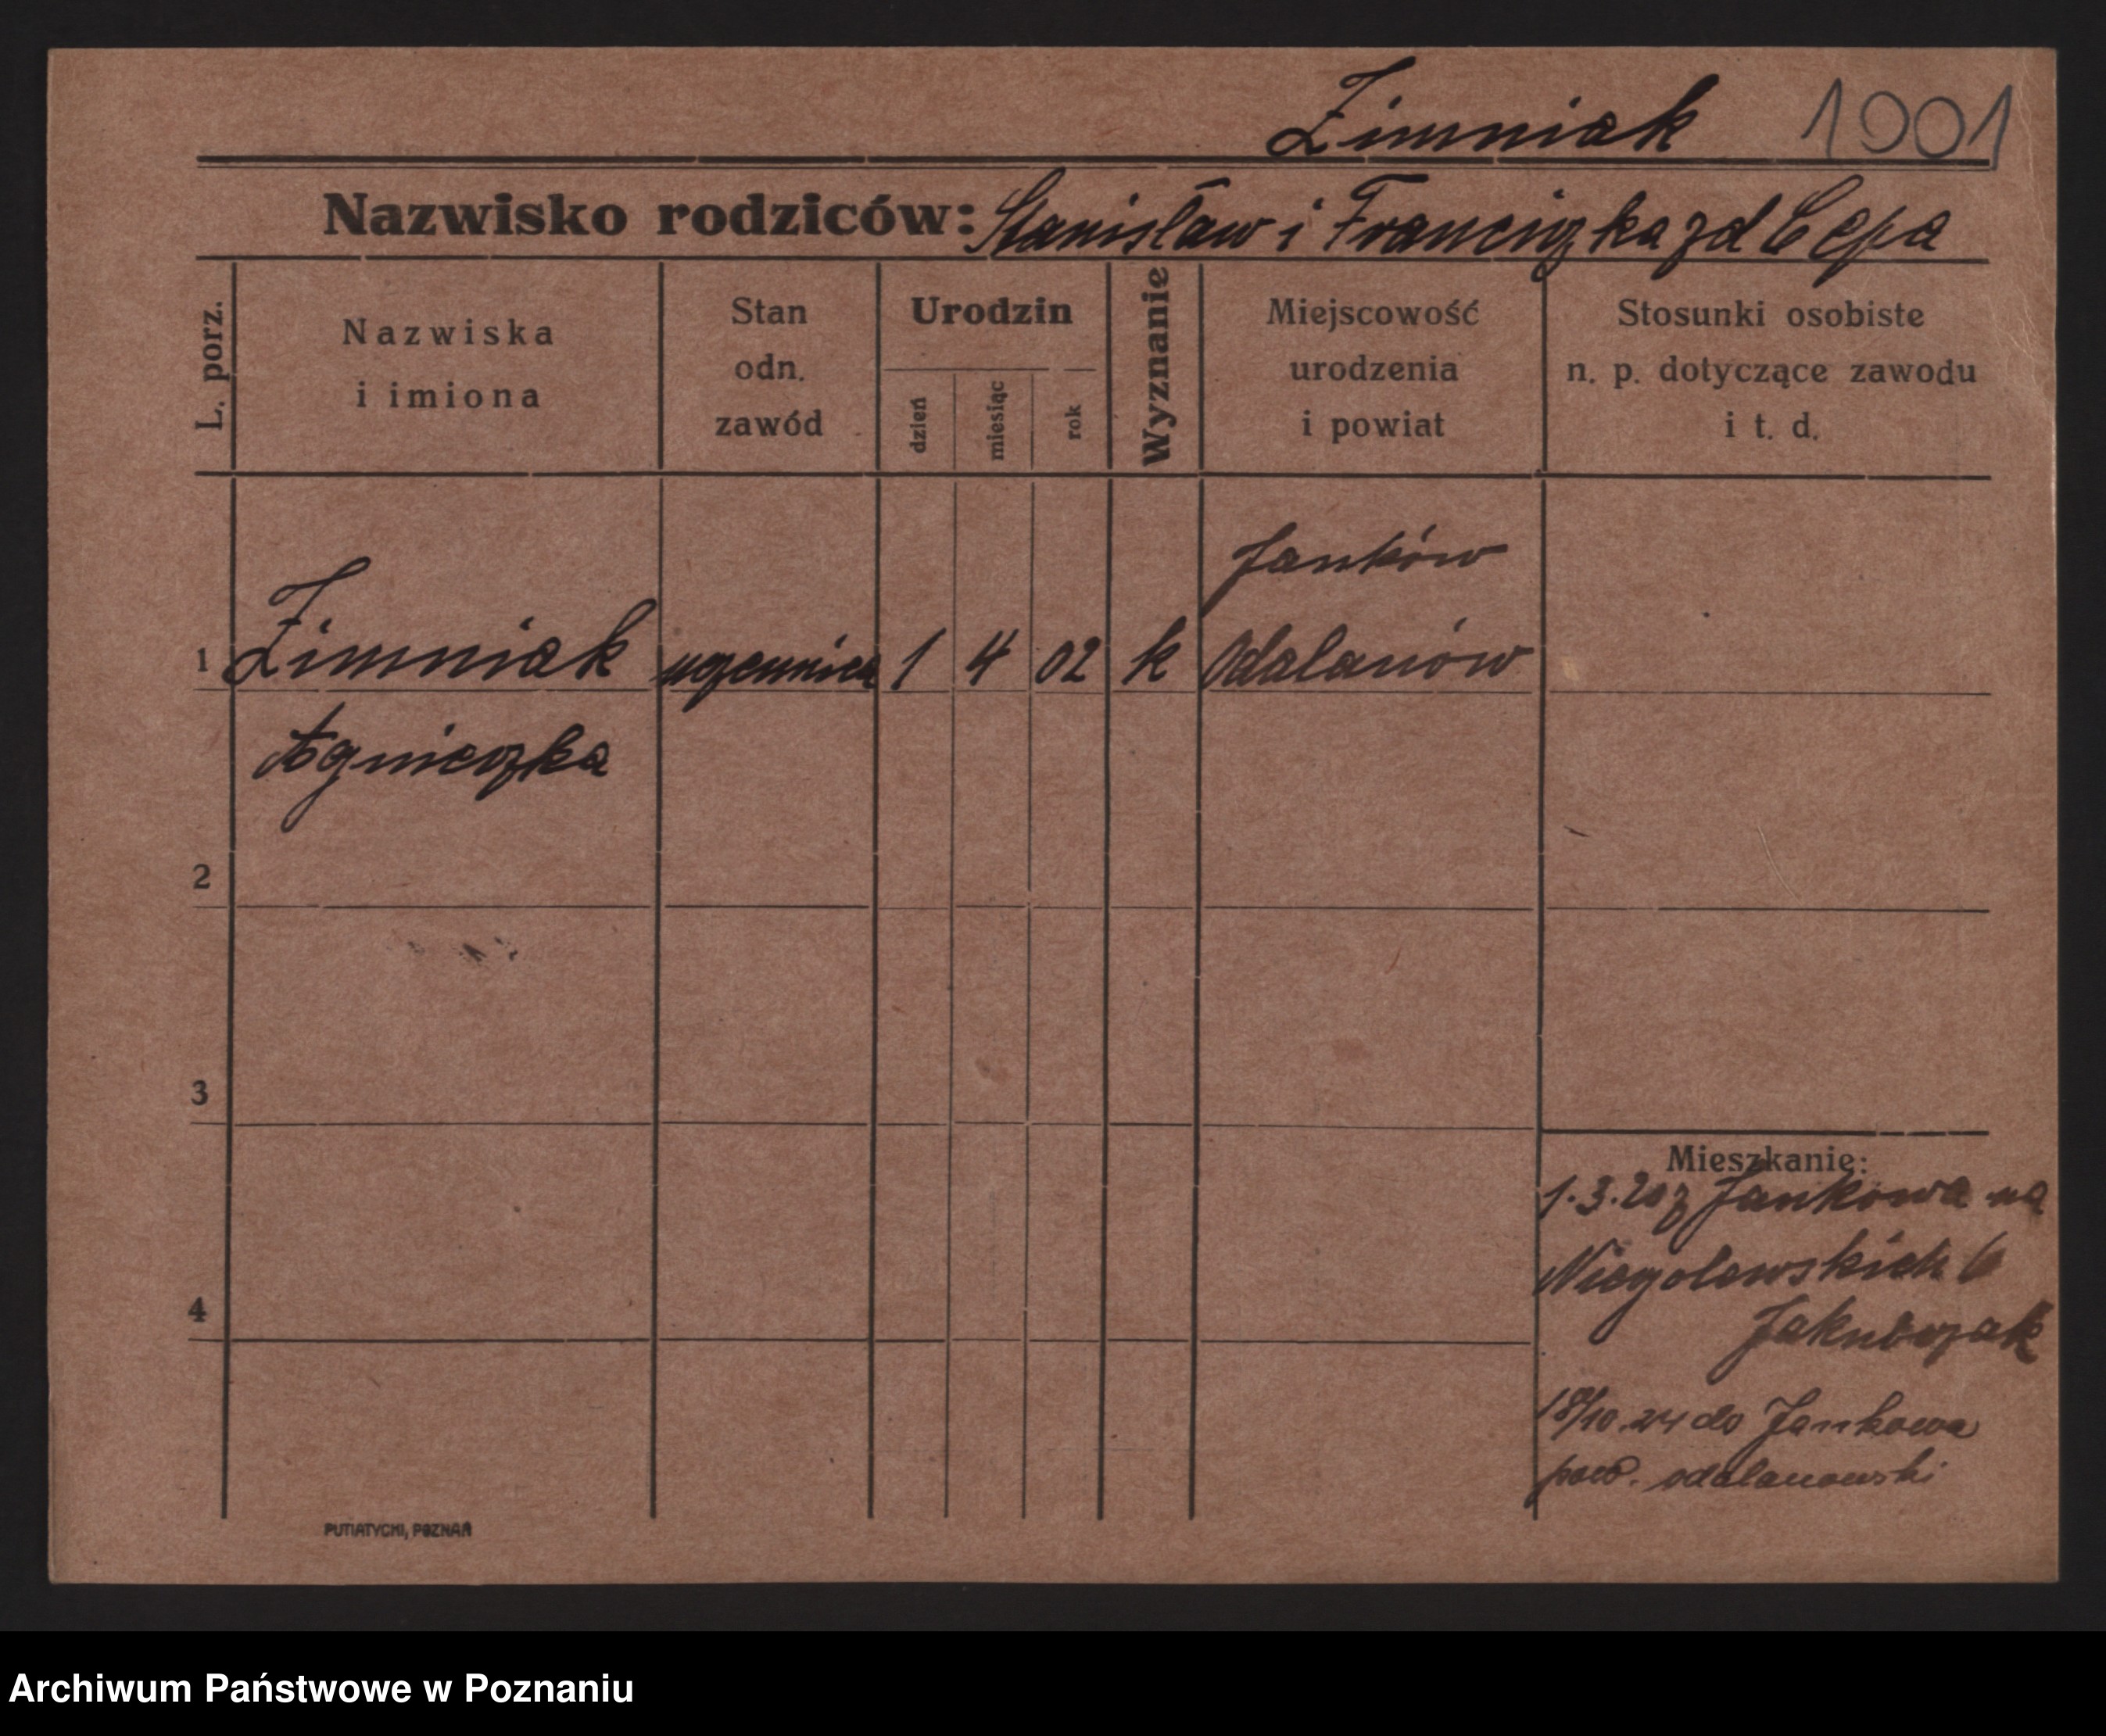 Zimniak 1901
Nazwisko rodziców: Stanisław i Franciszka zd Cepa
L. porz.
Nazwiska
i imiona
Stan
odn.
zawód
Urodzin
dzień
miesiąc
rok
Wyznanie
Miejscowość
urodzenia
i powiat
Stosunki osobiste
n. p. dotyczące zawodu
i t. d.
Janków
1 Zimniak uczennica 1 4 02 k Odalanów
Agnieszka
2
3
4
Mieszkanie:
1.3.20 z Jankowa na
Niegolewskich 6
18/10.24 do Jankowa
pow. odalanowski
PUTIATYCKI, POZNAŃ
Archiwum Państwowe w Poznaniu